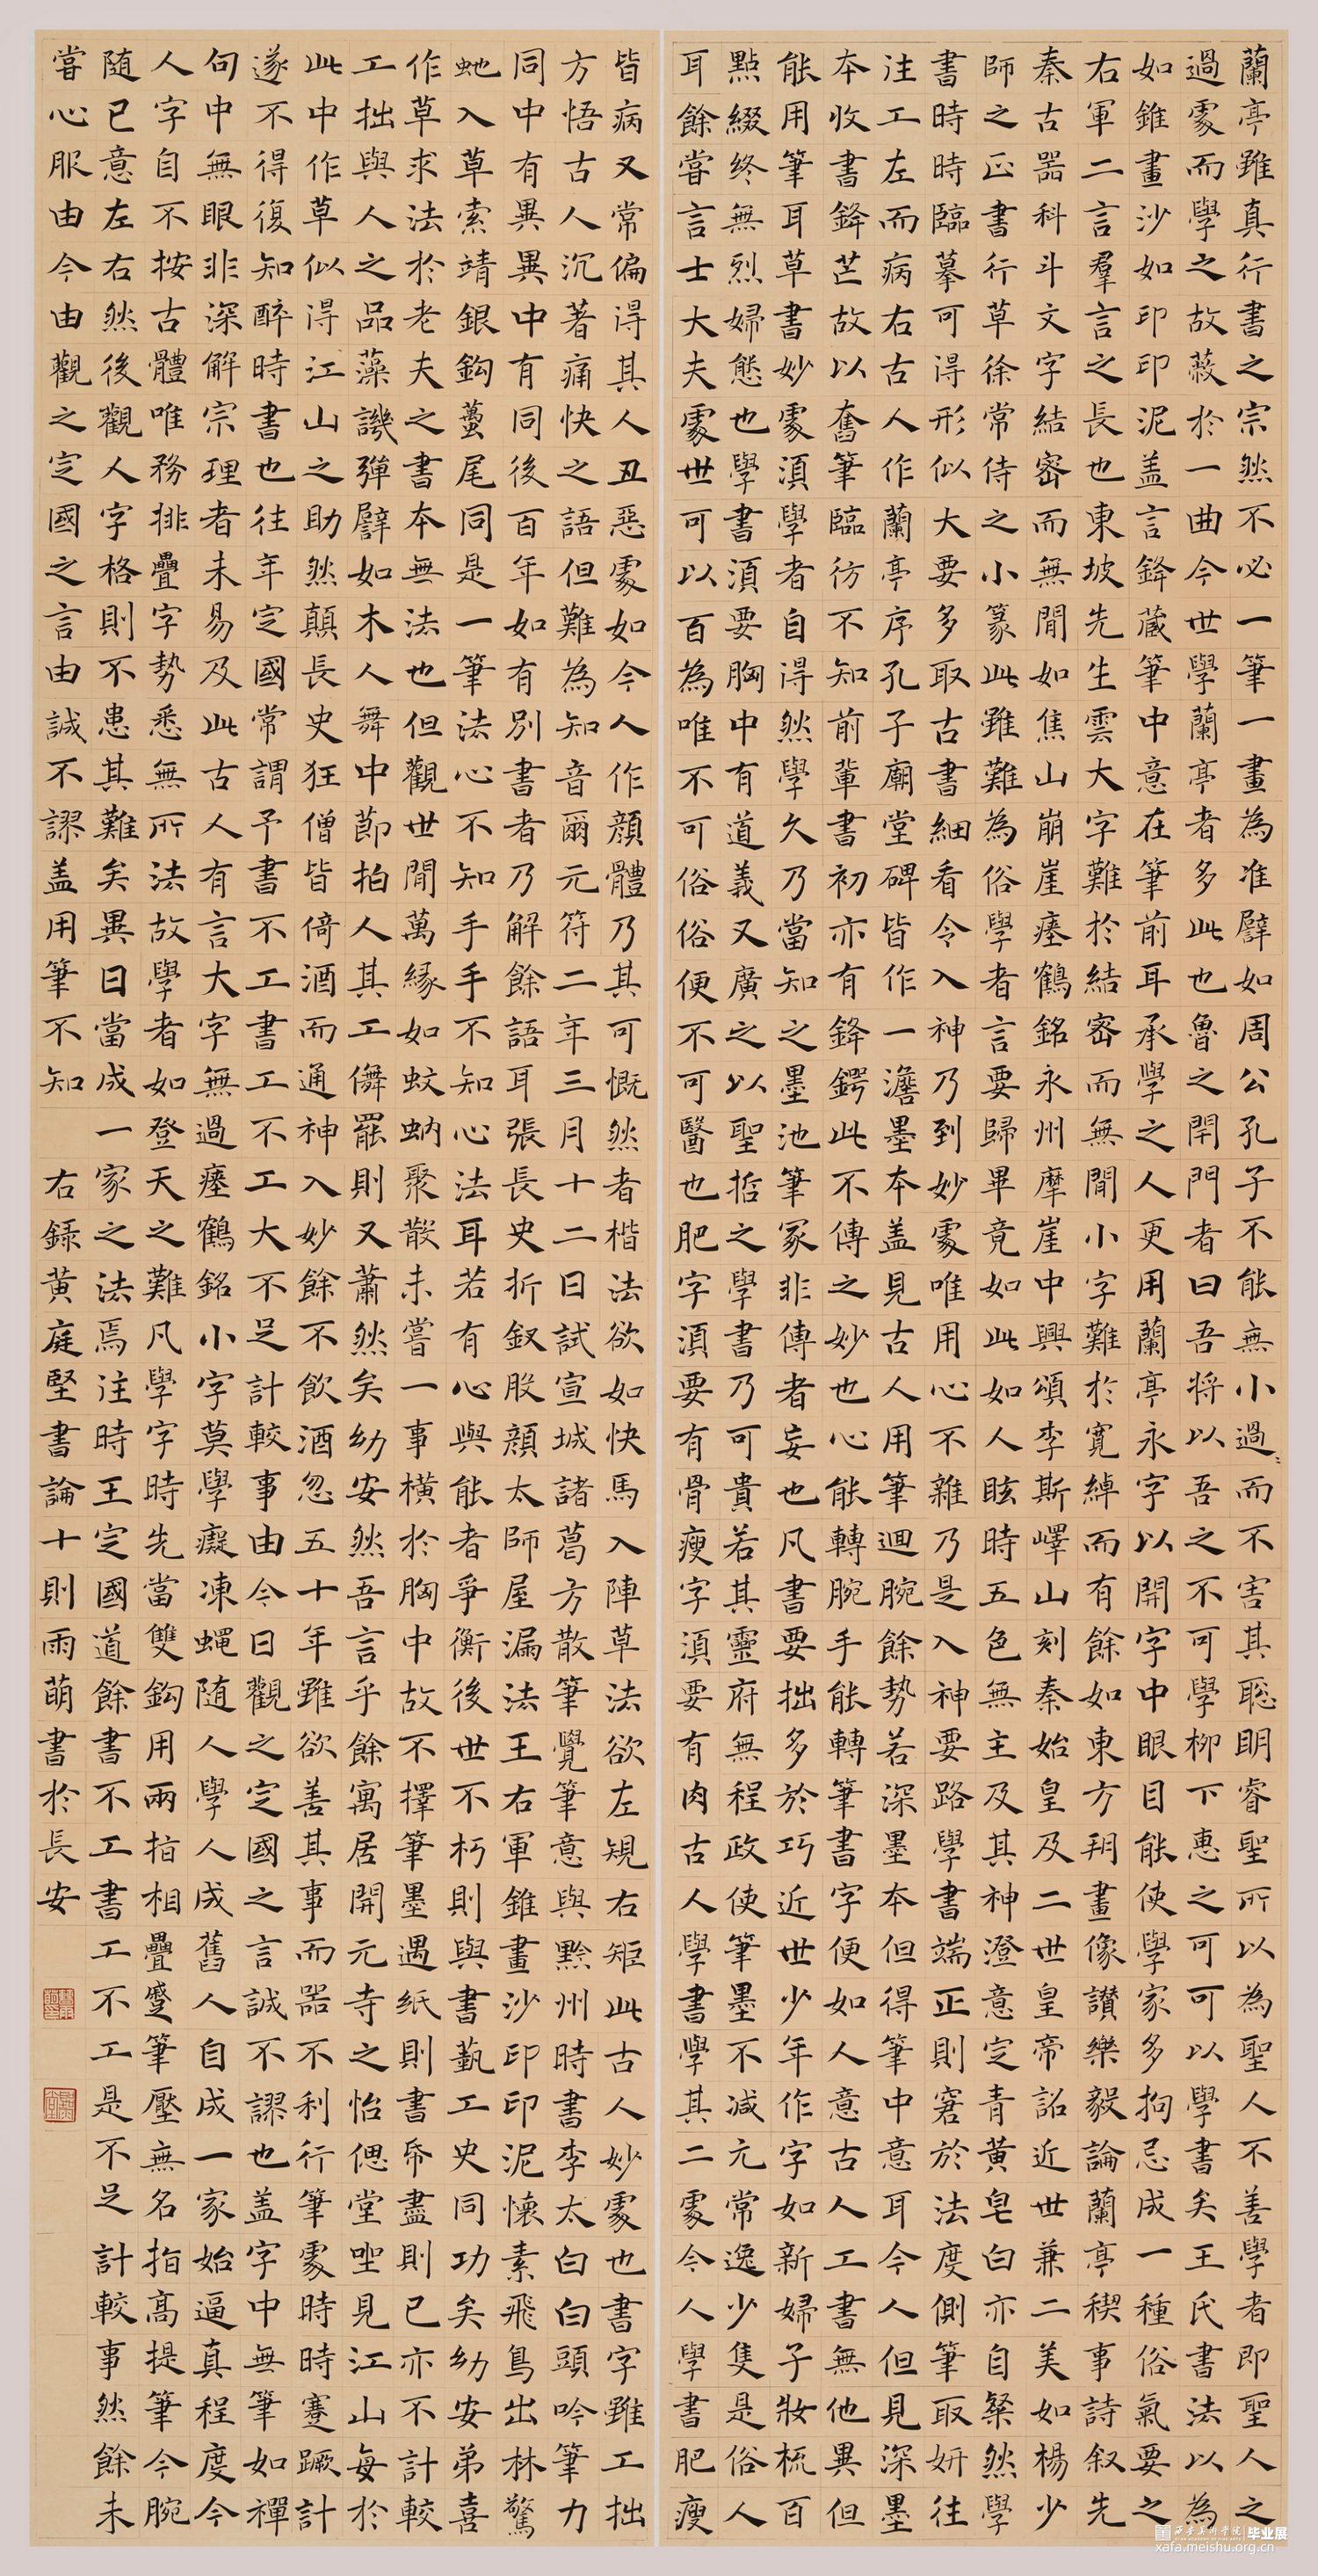 蘭亭雖真行書之宗然不必一筆一畫為准譬如周公孔子不能無小過〻而不害其聰明睿聖所以為聖人不善學者即聖人之
過處而學之故蔽於一曲今世學蘭亭者多此也魯之閉門者曰吾將以吾之不可學柳下惠之可可以學書矣王氏書法以為
如錐畫沙如印印泥盖言鋒藏筆中意在筆前耳承學之人更用蘭亭永字以開字中眼目能使學家多拘忌成一種俗氣要之
右軍二言羣言之長也東坡先生雲大字難於結密而無間小字難於寬綽而有餘如東方朔畫像讚樂毅論蘭亭稧事詩叙先
秦古器科斗文字結密而無間如焦山崩崖瘞鶴銘永州摩崖中興頌李斯嶧山刻秦始皇及二世皇帝詔近世兼二美如楊少
師之正書行草徐常侍之小篆此雖難為俗學者言要歸畢竟如此如人眩時五色無主及其神澄意定青黃皂白亦自粲然學
書時時臨摹可得形似大要多取古書細看令入神乃到妙處唯用心不雜乃是入神要路學書端正則窘於法度側筆取妍往
注工左而病右古人作蘭亭序孔子廟堂碑皆作一澹墨本盖見古人用筆迴腕餘勢若深墨本但得筆中意耳今人但見深墨
本收書鋒芒故以奮筆臨彷不知前輩書初亦有鋒鍔此不傳之妙也心能轉腕手能轉筆書字便如人意古人工書無他異但
能用筆耳草書妙處須學者自得然學久乃當知之墨池筆冢非傳者妄也凡書要拙多於巧近世少年作字如新婦子妝梳百
點綴終無烈婦態也學書須要胸中有道義又廣之以聖哲之學書乃可貴若其靈府無程政使筆墨不減元常逸少隻是俗人
耳餘嘗言士大夫處世可以百為唯不可俗俗便不可醫也肥字須要有骨瘦字須要有肉古人學書學其二處今人學書肥瘦
皆病又常偏得其人丑惡處如今人作顏體乃其可慨然者楷法欲如快馬入陣草法欲左規右矩此古人妙處也書字雖工拙
方悟古人沉著痛快之語但難為知音爾元符二年三月十二日試宣城諸葛方散筆覺筆意與黔州時書李太白白頭吟筆力
同中有異異中有同後百年如有別書者乃解餘語耳張長史折釵股顏太師屋漏法王右軍錐畫沙印印泥懷素飛鳥出林驚
虵入草索靖銀鈎蠆尾同是一筆法心不知手手不知心法耳若有心與能者爭衡後世不朽則與書藝工史同功矣幼安弟喜
作草求法於老夫之書本無法也但觀世間萬緣如蚊蚋聚散未嘗一事橫於胸中故不擇筆墨遇紙則書帋盡則已亦不計較
工拙與人之品藻譏彈譬如木人舞中節拍人其工儛罷則又蕭然矣幼安然吾言乎餘寓居開元寺之怡偲堂坐見江山每於
此中作草似得江山之助然顛長史狂僧皆倚酒而通神入妙餘不飲酒忽五十年雖欲善其事而器不利行筆處時時蹇蹶計
遂不得復知醉時書也往年定國常謂予書不工書工不工大不足計較事由今日觀之定國之言誠不謬也盖字中無筆如禪
句中無眼非深解宗理者未易及此古人有言大字無過瘞鶴銘小字莫學癡凍蠅随人學人成舊人自成一家始逼真程度今
人字自不按古體唯務排疊字勢悉無所法故學者如登天之難凡學字時先當雙鈎用兩指相疊蹙筆壓無名指高提筆今腕
随已意左右然後觀人字格則不患其難矣異日當成一家之法焉注時王定國道餘書不工書工不工是不足計較事然餘未
嘗心服由今由觀之定國之言由誠不謬盖用筆不知 右錄黃庭堅書論十則雨萌書於長安
西安美術學院 毕业展
xafa.meishu.org.cn